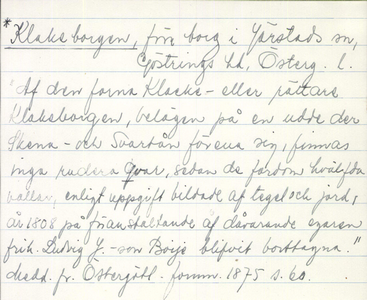 *Klaksborgen, förr borg i Järstads sn,
Göstrings hd, Österg. l.
"Af den forna Klacks- eller rättare
Klaksborgen, belägen på en udde der
Skena- och Svartån förena sig, finnas
inga rudera qvar, sedan de fordom hvälfda
vallar, enligt uppgift bildade af tegel och jord,
år 1808 på föranstaltande af dåvarande egaren
frih. Ludvig -son Börje blifvit borttagna."
Medd. fr. Östergötl. fornm. 1875 s. 60.